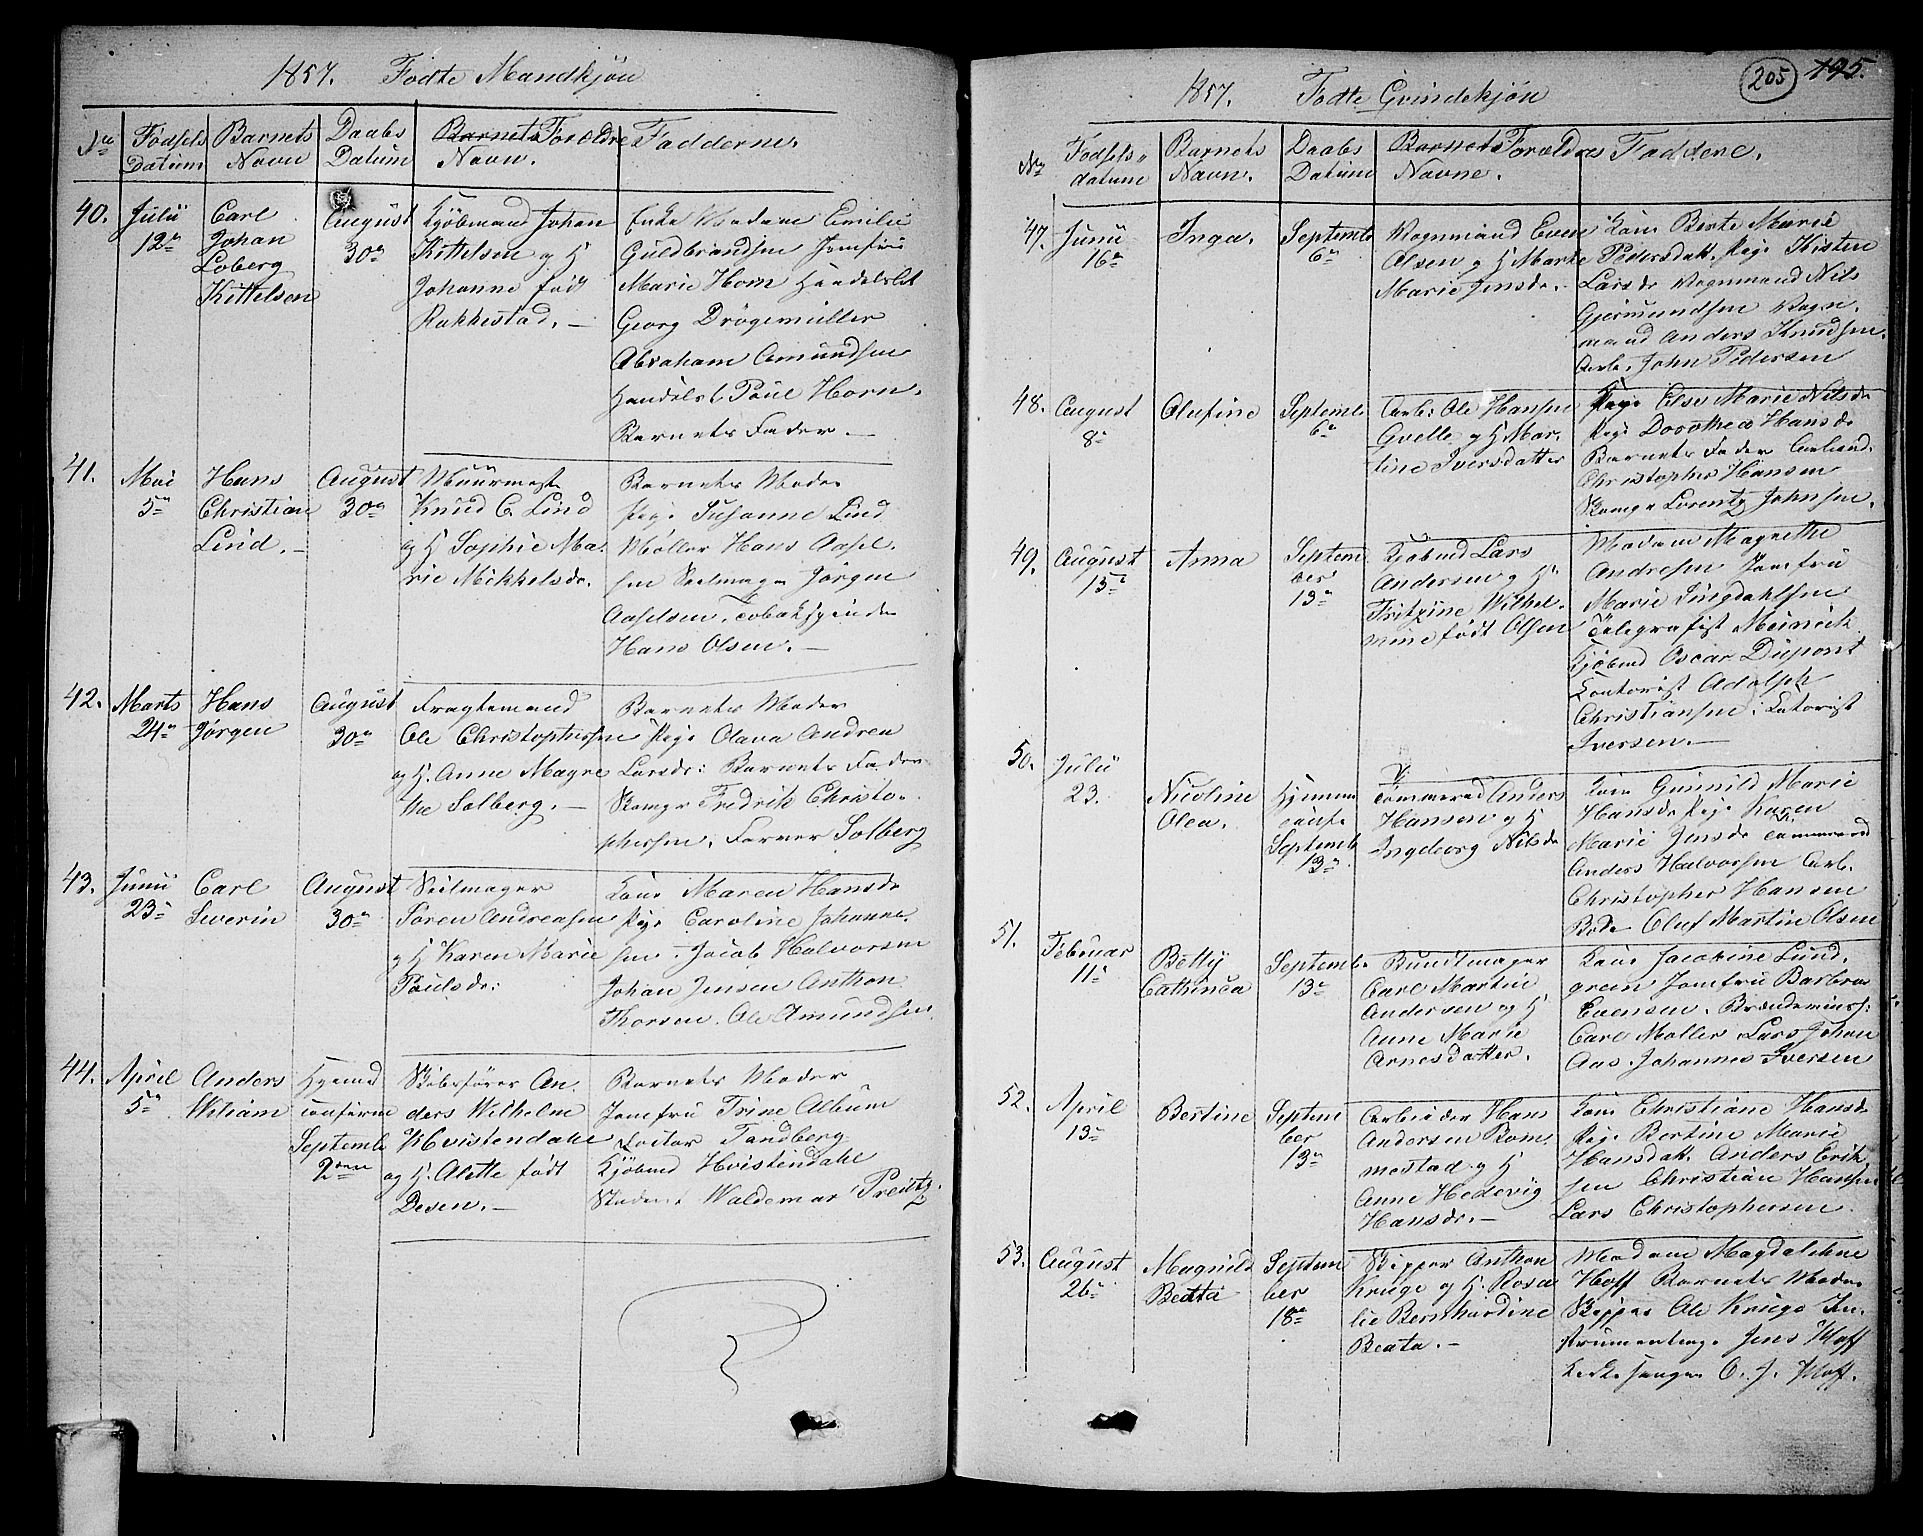 1857. Fødte Mandkjøn
No Fødsels Datum Barnets Navn Daabs Datum Barnets Forældre Navn. Faddernes
40. Julii 12te Carl Johan Loberg Kittelsen August 30te
Kjøbmand Johan
Kittelsen og H
Johanne født
Rakkestad. —
Enke Madam Emilie
Guldbrandsen Jomfru
Marie Horn Handelsbt
Georg Drögemüller
Abraham Amundsen
Handelsbt Paul Horn.
Barnets Fader. —
41. Mai 5te Hans Christian Lind. — August 30te
Muurmest
Knud C. Lind
og H Sophie Ma-
rie Mikkelsdr.
Barnets Moder
Pige Susanne Lind
Møller Hans Aasel-
sen Seilmager Jørgen
Aaselsen, Tobakspinder
Hans Olsen. —
42. Marts 24de Hans Jørgen August 30te
Fragtemand
Ole Christophersen
og H. Anne Magre
the Solberg. —
Barnets Moder
Pige Olava Andrea
Larsdr: Barnets Fader
Skomgr Fredrik Christo-
phersen, Farver Solberg
43. Junii 23de Carl Severin August 30te
Seilmager
Soren Andreasen
og H Karen Marie
Poulsdr:
Kone Maren Hansdr
Pige Caroline Johanne-
sen. Jacob Halvorsen
Johan Jensen Anthon
Thorsen. Ole Amundsen
44. April 5te Anders Wiliam Hjemd confirme Septembr 2den
Skibsfører An-
ders Wilhelm
Hvistendahl
og H. Alette født
Desen. —
Barnets Moder
Jomfru Trine Album
Doctor Tandberg
Kjøbmd Hvistendahl
Student Waldemar Preutz.
1857. Fødte Qvindekjøn
205 195.
No Fødsels datum Barnets Navn. Daabs Datum Barnets Forældres Navne. Faddene.
47. Junii 16de Inga. Septembr 6te
Vognmand Even
Olsen og H Marte
Marie Jensdr. —
Kone Berte Marie
Pedersdatt. Pige Kisten
Larsdr Vognmand Nils
Gjermundsen Vogn-
mand Anders Knudsen.
Arb. John Pedersen
48. August 8de Olufine Septembr 6te
Arb: Ole Hansen
Gvelle og H Mar-
tine Iversdatter
Pige Else Marie Nilsdr
Pige Dorothea Hansdr
Barnets Fader Arbeid.
Christopher Hansen
Skomgr Lorentz Johnsen.
49. August 15de Anna September 13de
Kjøbmd Lars
Andersen og H.
Fritzine Wilhel-
mine født Olsen
Madam Magrethe
Andresen Jomfru
Marie Lingdahlsen
Telegrafist Meinich
Kjøbmd Oscar Dupont
Contorist Adolph
Christiansen, Cotorist
Iversen. —
50. Julii 23. Nicoline Olea. Hjemme døbt Septembr 13de
Tømmermd Anders
Hansen og H
Ingeborg Nilsdr
Kone Gunnild Marie
Hansdr Pige Karen
Marie Jensdr Tømmermd
Anders Halvorsen Arb.
Christopher Hansen
Oluf Martin Olsen
51. Februar 11te Betty Cathinca Septembr. 13de
Bundtmager
Carl Martin
Andersen og H
Anne Marie
Arnesdatter.
Kone Jacobine Lund-
green Jomfru Barbra
Evensen. Brændevinss:
Carl Møller Lars Johan
Aas. Johannes Iversen
52. April 13de Bertine September 13de
Arbeider Hans
Andersen Rom-
mestad og H
Anne Hedevig
Hansdr. —
Kone Christiane Hansdr
Pige Bertine Marie
Hansdatt. Anders Erik
sen Christian Hansen
Lars Christophersen
53. August 26de Magnild Beata September 18de
Skipper Anthon
Kruge og H. Rosa
lie Bernhardine
Beata. —
Madam Magdalehne
Hoff Barnets Moder
Skipper Ole Kruge In-
strumentmagr Jens Hoff
Kirkesanger O. J. Hoff.